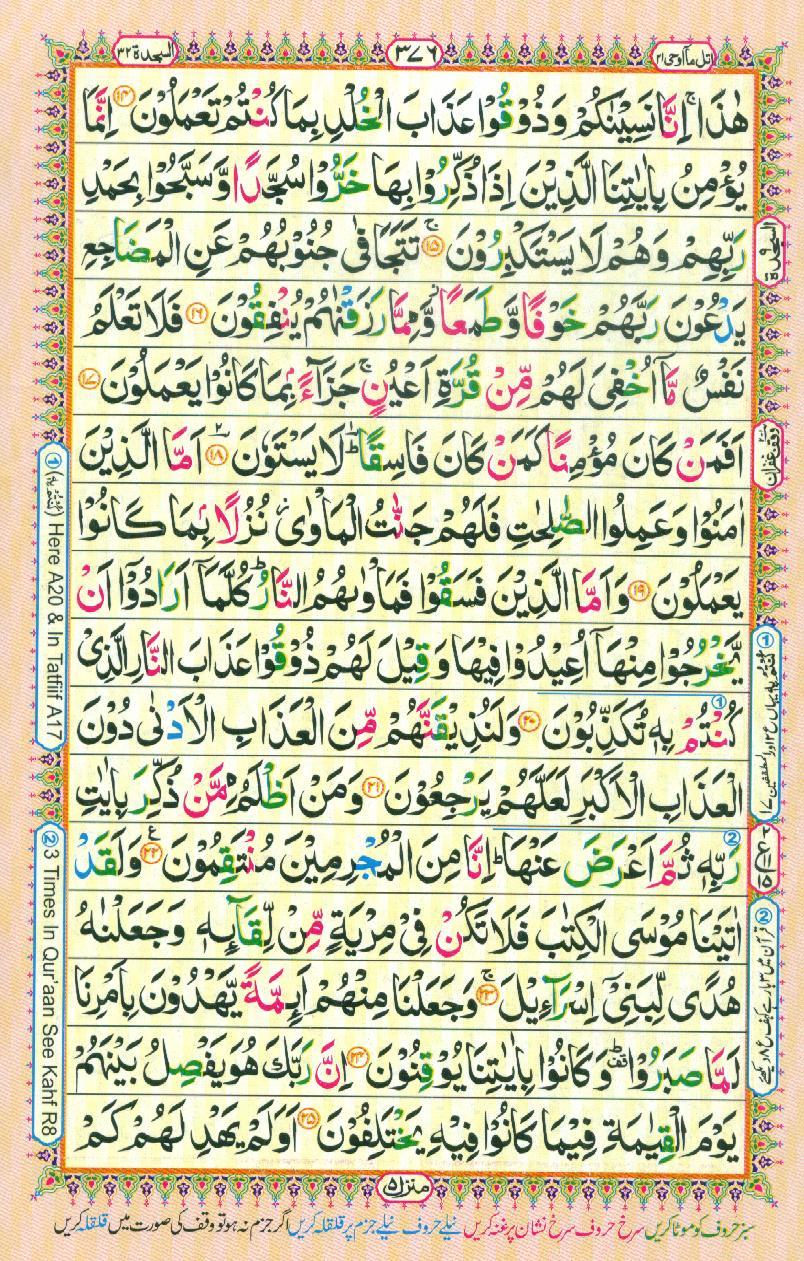 السجدة ٣٢
٣٧٦
اتل ما اوحی ٢١
هٰذَا ۚ اِنَّا نَسِیْنٰكُمْ وَ ذُوْقُوْا عَذَابَ الْخُلْدِ بِمَا كُنْتُمْ تَعْمَلُوْنَ ﴿۱۴﴾ اِنَّمَا
یُؤْمِنُ بِاٰیٰتِنَا الَّذِیْنَ اِذَا ذُكِّرُوْا بِهَا خَرُّوْا سُجَّدًا وَّ سَبَّحُوْا بِحَمْدِ
رَبِّهِمْ وَ هُمْ لَا یَسْتَكْبِرُوْنَ ﴿۱۵﴾ۚ تَتَجَافٰى جُنُوْبُهُمْ عَنِ الْمَضَاجِعِ
یَدْعُوْنَ رَبَّهُمْ خَوْفًا وَّ طَمَعًا ؗ وَّ مِمَّا رَزَقْنٰهُمْ یُنْفِقُوْنَ ﴿۱۶﴾ فَلَا تَعْلَمُ
نَفْسٌ مَّاۤ اُخْفِیَ لَهُمْ مِّنْ قُرَّةِ اَعْیُنٍ ۚ جَزَآءًۢ بِمَا كَانُوْا یَعْمَلُوْنَ ﴿۱۷﴾
اَفَمَنْ كَانَ مُؤْمِنًا كَمَنْ كَانَ فَاسِقًا ؕ لَا یَسْتَوٗنَ ﴿۱۸﴾ اَمَّا الَّذِیْنَ
اٰمَنُوْا وَ عَمِلُوا الصّٰلِحٰتِ فَلَهُمْ جَنّٰتُ الْمَاْوٰى ؗ نُزُلًۢا بِمَا كَانُوْا
یَعْمَلُوْنَ ﴿۱۹﴾ وَ اَمَّا الَّذِیْنَ فَسَقُوْا فَمَاْوٰىهُمُ النَّارُ ؕ كُلَّمَاۤ اَرَادُوْۤا اَنْ
یَّخْرُجُوْا مِنْهَاۤ اُعِیْدُوْا فِیْهَا وَ قِیْلَ لَهُمْ ذُوْقُوْا عَذَابَ النَّارِ الَّذِیْ
كُنْتُمْ بِهٖ تُكَذِّبُوْنَ ﴿۲۰﴾ وَ لَنُذِیْقَنَّهُمْ مِّنَ الْعَذَابِ الْاَدْنٰى دُوْنَ
الْعَذَابِ الْاَكْبَرِ لَعَلَّهُمْ یَرْجِعُوْنَ ﴿۲۱﴾ وَ مَنْ اَظْلَمُ مِمَّنْ ذُكِّرَ بِاٰیٰتِ
رَبِّهٖ ثُمَّ اَعْرَضَ عَنْهَا ؕ اِنَّا مِنَ الْمُجْرِمِیْنَ مُنْتَقِمُوْنَ ﴿۲۲﴾ وَ لَقَدْ
اٰتَیْنَا مُوْسَى الْكِتٰبَ فَلَا تَكُنْ فِیْ مِرْیَةٍ مِّنْ لِّقَآىِٕهٖ وَ جَعَلْنٰهُ
هُدًى لِّبَنِیْۤ اِسْرَآءِیْلَ ﴿۲۳﴾ۚ وَ جَعَلْنَا مِنْهُمْ اَىِٕمَّةً یَّهْدُوْنَ بِاَمْرِنَا
لَمَّا صَبَرُوْا ؕ۫ وَ كَانُوْا بِاٰیٰتِنَا یُوْقِنُوْنَ ﴿۲۴﴾ اِنَّ رَبَّكَ هُوَ یَفْصِلُ بَیْنَهُمْ
یَوْمَ الْقِیٰمَةِ فِیْمَا كَانُوْا فِیْهِ یَخْتَلِفُوْنَ ﴿۲۵﴾ اَوَ لَمْ یَهْدِ لَهُمْ كَمْ
السجدة
وقف غفران
① (كُنْتُمْ بِهٖ) Here A20 & In Tatfiif A17
② 3 Times In Qur'aan See Kahf R8
منزل ٥
سبز حروف کو موٹا کریں سرخ حروف سرخ نشان پر غنہ کریں نیلے حروف نیلے جزم پر قلقلہ کریں اگر جزم نہ ہو تو وقف کی صورت میں قلقلہ کریں